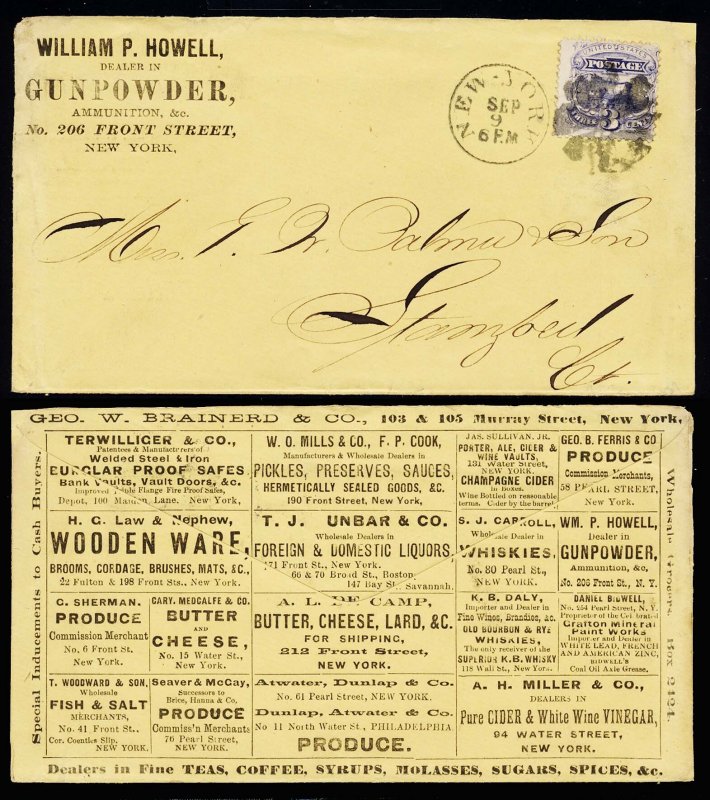 WILLIAM P. HOWELL,
DEALER IN
GUNPOWDER,
AMMUNITION, &c.
No. 206 FRONT STREET,
NEW YORK,
NEW-YORK
SEP
9
6 P.M
UNITED STATES
POSTAGE
THREE 3 CENTS
Mess. Palmer & Son
Stamford
Ct.
GEO. W. BRAINERD & CO., 103 & 105 Murray Street, New York,
Special Inducements to Cash Buyers.
TERWILLIGER & CO.,
Patentees & Manufacturers of
Welded Steel & Iron
BURGLAR PROOF SAFES
Bank Vaults, Vault Doors, &c.
Improved Triple Flange Fire Proof Safes,
Depot, 100 Maiden Lane. New York,
W. O. MILLS & CO., F. P. COOK,
Manufacturers & Wholesale Dealers in
PICKLES, PRESERVES, SAUCES,
HERMETICALLY SEALED GOODS, &C.
190 Front Street, New York,
JAS. SULLIVAN. JR.
PORTER, ALE, CIDER &
WINE VAULTS,
131 Water Street,
NEW YORK.
CHAMPAGNE CIDER
in Boxes.
Wine Bottled on reasonable
terms. Cider by the barrel
GEO. B. FERRIS & CO
PRODUCE
Commission Merchants,
58 PEARL STREET,
NEW YORK.
H. G. Law & Nephew,
WOODEN WARE,
BROOMS, CORDAGE, BRUSHES, MATS, &C.,
22 Fulton & 198 Front Sts., New York.
T. J. UNBAR & CO.
Wholesale Dealers in
FOREIGN & DOMESTIC LIQUORS,
171 Front St., New York.
66 & 70 Broad St., Boston,
147 Bay St., Savannah.
S. J. CARROLL,
Wholesale Dealer in
WHISKIES,
No. 80 Pearl St.,
NEW YORK.
WM. P. HOWELL,
Dealer in
GUNPOWDER,
Ammunition, &c,
No. 206 Front St., N. Y.
C. SHERMAN.
PRODUCE
Commission Merchant
No. 6 Front St.
New York.
GARY. MEDCALFE & CO.
BUTTER
AND
CHEESE,
No. 15 Water St.,
New York.
A. L. DE CAMP,
BUTTER, CHEESE, LARD, &C.
FOR SHIPPING,
212 Front Street,
NEW YORK.
K. B. DALY,
Importer and Dealer in
Fine Wines, Brandies, &c.
OLD BOURBON & RYE
WHISKIES,
The only receiver of the
SUPERIOR K. B. WHISKY
118 Wall St., New York.
DANIEL BIDWELL,
No. 254 Pearl Street, N. Y.
Proprietor of the Celebrated
Grafton Mineral
Paint Works
Importer and Dealer in
WHITE LEAD, FRENCH
AND AMERICAN ZINC,
BIDWELL'S
Coal Oil Axle Grease.
T. WOODWARD & SON,
Wholesale
FISH & SALT
MERCHANTS,
No. 41 Front St.,
Cor. Coenties Slip.
NEW YORK.
Seaver & McGay,
Successors to
Brice, Hanna & Co,
PRODUCE
Commiss'n Merchants
76 Pearl Street,
NEW YORK.
Atwater, Dunlap & Co.
No. 61 Pearl Street, NEW YORK.
Dunlap, Atwater & Co.
No 11 North Water St., PHILADELPHIA
PRODUCE.
A. H. MILLER & CO.,
DEALERS IN
Pure CIDER & White Wine VINEGAR,
94 WATER STREET,
NEW YORK.
Wholesale Grocers, Box 2421.
Dealers in Fine TEAS, COFFEE, SYRUPS, MOLASSES, SUGARS, SPICES, &c.